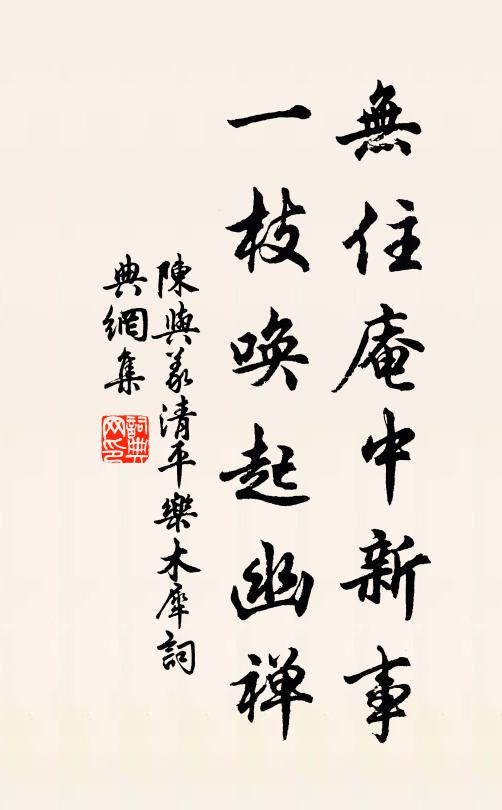 無住庵中新事
一枝唤起幽禅
陳與義清平樂木犀詞
典網集
詞典网印